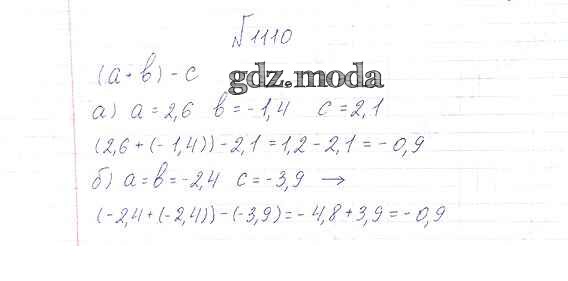 № 1110
(a + b) - c
gdz.moda
а) a = 2,6 b = -1,4 c = 2,1
(2,6 + (-1,4)) - 2,1 = 1,2 - 2,1 = -0,9
б) a = b = -2,4 c = -3,9 →
(-2,4 + (-2,4)) - (-3,9) = -4,8 + 3,9 = -0,9